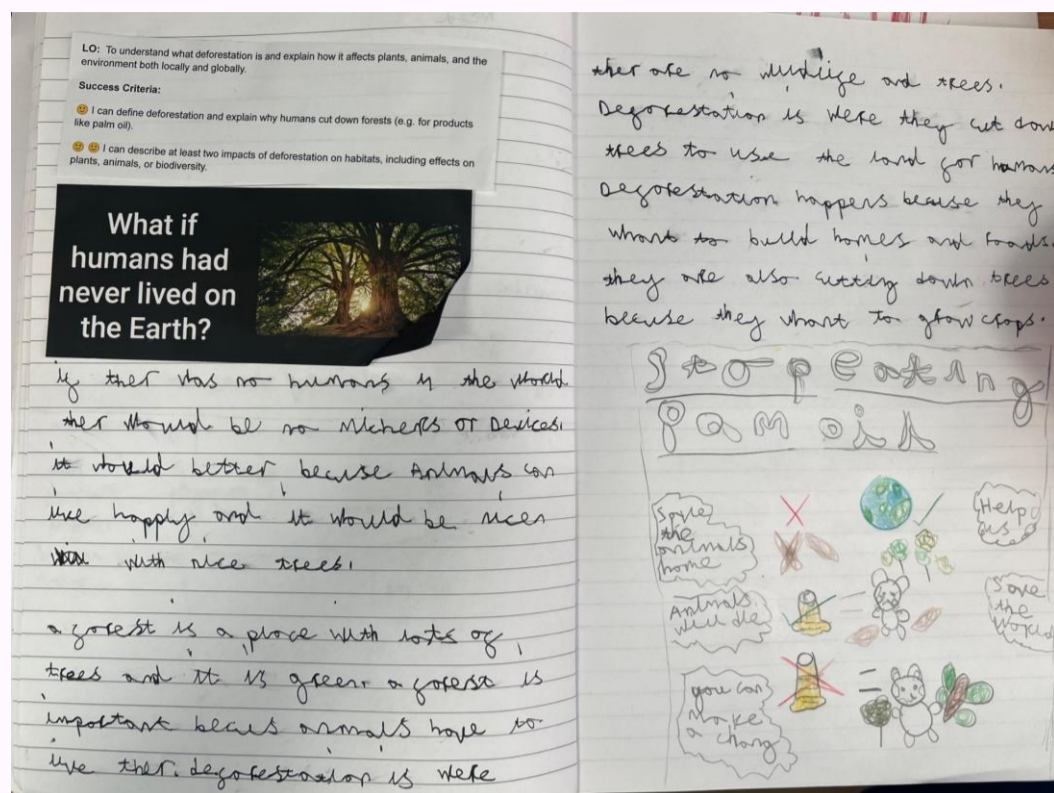 LO: To understand what deforestation is and explain how it affects plants, animals, and the
environment both locally and globally.
Success Criteria:
🙂 I can define deforestation and explain why humans cut down forests (e.g. for products
like palm oil).
🙂 🙂 I can describe at least two impacts of deforestation on habitats, including effects on
plants, animals, or biodiversity.
What if
humans had
never lived on
the Earth?
if ther was no humans in the world
ther would be no or Devices.
it would better becuse Animals can
live happly and it would be nicer
with nice trees.
a forest is a place with lots of
trees and it is green. a forest is
important becus animals have to
live ther. deforestation is were
ther are no and trees.
Deforestation is were they cut down
trees to use the land for humans
Deforestation happens becuse they
whant to build homes and roads.
they are also cutting down trees
becuse they whant to grow crops.
Stop eating
Pam oil
Save
the
animals
home
Help
us
Animals
will die
Save
the
World
you can
make
a chang